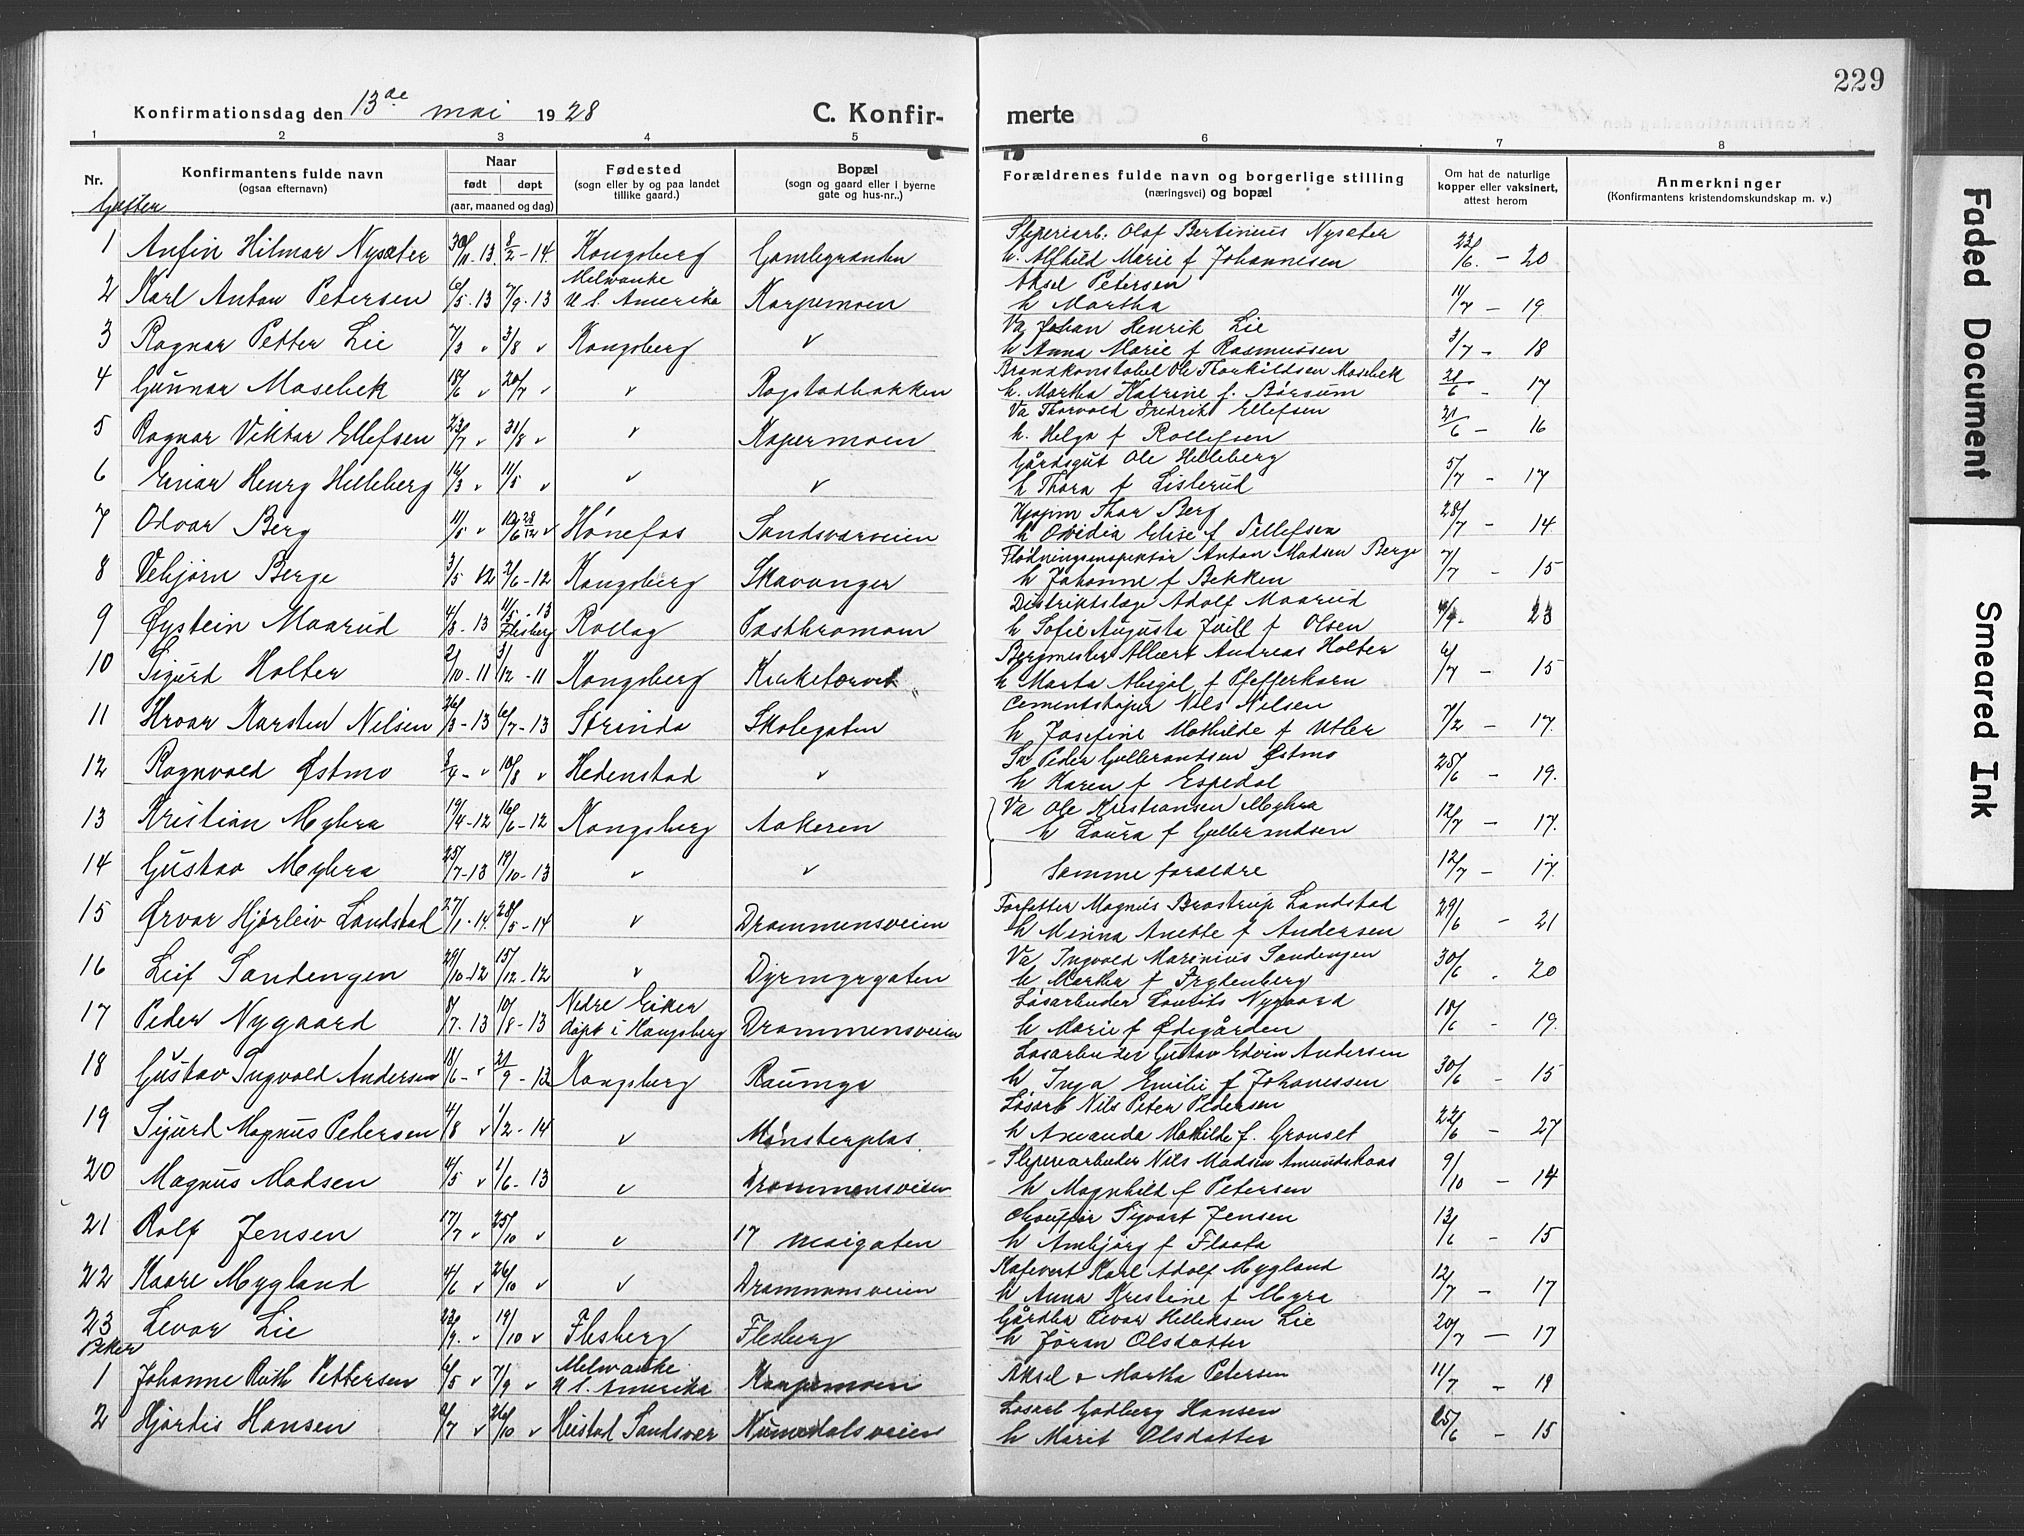 229
Konfirmationsdag den 13de mai 1928 C. Konfir- merte
1 2 3 4 5 6 7 8
Nr. Konfirmantens fulde navn (ogsaa efternavn) Naar født døpt (aar, maaned og dag) Fødested (sogn eller by og paa landet tillike gaard.) Bopæl (sogn og gaard eller i byerne gate og hus-nr..) Forældrenes fulde navn og borgerlige stilling (næringsvei) og bopæl Om hat de naturlige kopper eller vaksinert, attest herom Anmerkninger (Konfirmantens kristendomskundskap m. v.)
Gutter
1 Anfin Hilmar Nysæter 30/11-13. 8/2-14 Kongsberg Gamlegrænden Sliperiarb. Olaf Bertinius Nysæter
h. Alfhild Marie f Johannesen 23/6. - 20
2 Karl Anton Petersen 6/5-13 7/9-13 Melwauke U S. Amerika Karpemoen Aksel Petersen
h Martha 11/7 - 19
3 Ragnar Petter Lie 7/3 v 3/8 v Kongsberg v Va Johan Henrik Lie
h Anna Marie f Rasmussen 3/7 - 18
4 Gunnar Mosebek 18/6 v 20/7 v v Rogstadbakken Brandkonstabel Ole Thorkildsen Mosebek
h. Martha Katrine f. Børsum 21/6 - 17
5 Ragnar Viktor Ellefsen 23/7 v 31/8 v v Kapermoen Va Thorvald Fredrik Ellefsen
h. Helga f Rollefsen 21/6 - 16
6 Einar Henry Helleberg 16/3 v 11/5 v v v Gårdsgut Ole Helleberg
h Thora f Listerud 5/7 - 17
7 Odvar Berg 11/5 v Hønefos Sandsværveien Thor Berg
h Ovidia Elise f Tellefsen 28/7 - 14
8 Vebjørn Berge 3/5 12 2/6-12 Kongsberg Skavanger Flødningsinspektør Anton Madsen Berge
h Johanne f Bekken 7/7 - 15
9 Øystein Maarud 4/3-13 11/5-13 Flesberg Rollag Distriktslæge Adolf Maarud
h Sofie Augusta f Olsen 23
10 Sigurd Holter 2/10-11 3/12-11 Kongsberg Kirketorvet Bergmester Albert Andreas Holter
h Marta Abigal f Pfefferkorn 6/7 - 15
11 Hroar Karsten Nilsen 26/3-13 6/7-13 Strinda Skolegaten Cementstøper Nils Nilsen
h Josefine Mathilde f Utler 7/2 - 17.
12 Ragnvald Østmo 3/4- v 10/8 v Hedenstad v Sa Peder Gulbrandsen Østmo
h Karen f Espedal 25/6 - 19.
13 Kristian Myhra 19/4-12 16/6-12 Kongsberg Aakeren Va Ole Kristiansen Myhra
h Laura f Gulbrandsen 12/7 - 17.
14 Gustav Myhra 25/7-13 19/10-13 v v Samme forældre 12/7 - 17.
15 Ørvar Hjørleiv Landstad 27/1-14. 28/5-14 v Drammensveien Forfatter Magnus Brostrup Landstad
h Minna Anette f Andersen 29/6 - 21
16 Leif Sandengen 29/10-12 15/12-12 v Dyrmyrgaten Va Ingvald Marinius Sandengen
h Martha f Frydenberg 30/6 . 20
17 Peder Nygaard 8/7-13 10/8-13 Nedre Eiker døpt i Kongsberg Drammensveien Løsarbeider Laurits Nygaard
h Marie f Ødegården 18/6 - 19.
18 Gustav Ingvald Andersen 18/6- v 21/9-13 Kongsberg Raumyr Løsarbeider Gustav Edvin Andersen
h Inga Emilie f Johanessen 30/6 - 15
19 Sigurd Magnus Pedersen 4/8 v 1/2-14 v Mønsterplas. Løsarb Nils Peter Pedersen
h Amanda Mathilde f. Gronset 22/6 - 27
20 Magnus Madsen 4/5 v 1/6-13 v Drammensveien Sliperiarbeider Nils Madsen Amundskaas
h Magnhild f Petersen 9/10 - 14
21 Rolf Jensen 17/7 v 25/10 v v 17 maigaten Chauffør Sigvart Jensen
h Ambjørg f Flaata 13/6 - 15
22 Kaare Mygland 4/6 v 26/10 v v Drammensveien Kafevert Karl Adolf Mygland
h Anna Kristine f Myra 12/7 - 17
23 Levar Lie 22/9. v 19/10 v Flesberg Flesberg Gårdbr Levor Helleksen Lie
h Jøran Olsdatter 20/7 - 17
Piker
1 Johanne Ruth Pettersen 6/5 v 7/9 v Melwauke U S. Amerika Karpemoen Aksel & Martha Petersen 11/7 - 19
2 Hjørdis Hansen 2/7 v 26/10 v Hustad Sandsvær Numedalsveien Løsarb Godberg Hansen
h Marit Olsdatter 25/6 - 15
Faded Document
Smeared Ink